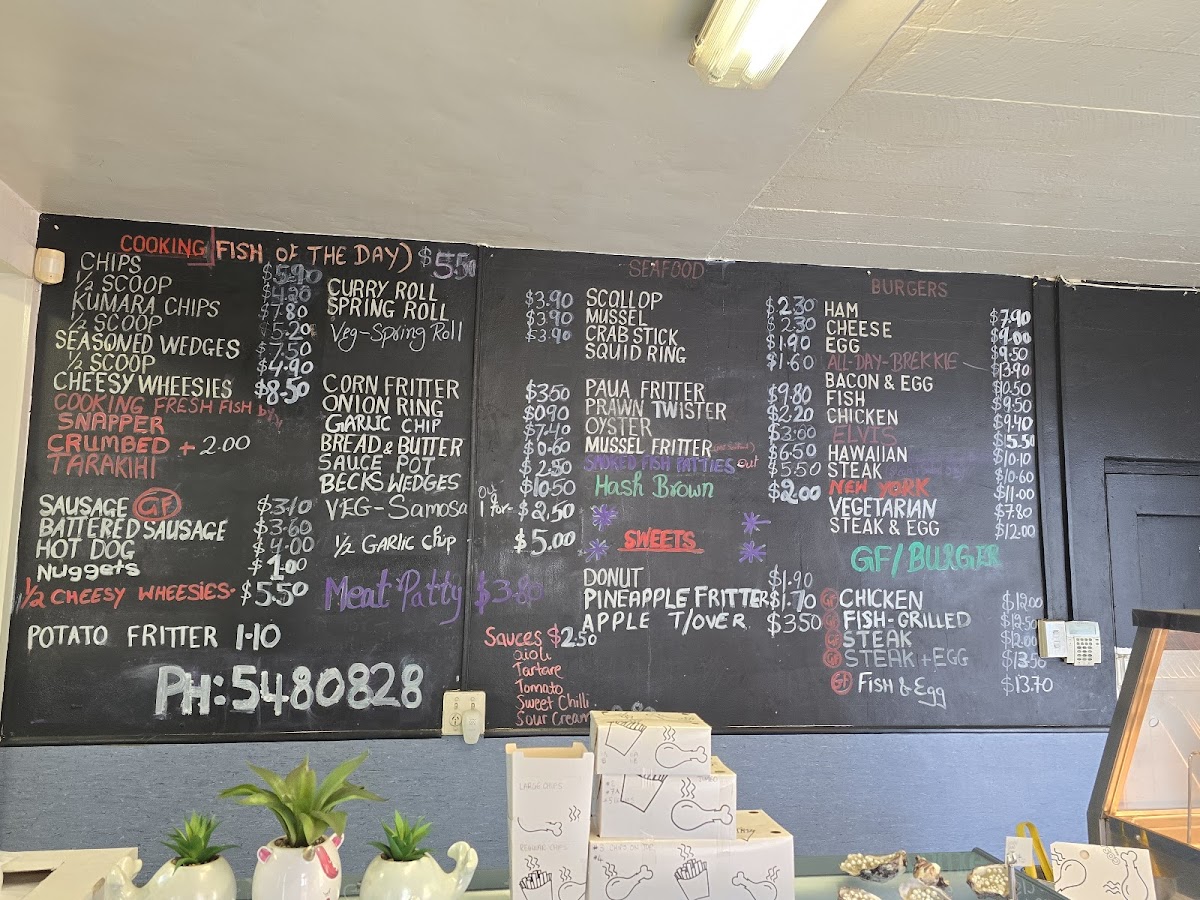 COOKING (FISH OF THE DAY) $5.50
CHIPS $5.90
½ SCOOP $4.20
KUMARA CHIPS $7.80
½ SCOOP $5.20
SEASONED WEDGES $7.50
½ SCOOP $4.90
CHEESY WHEESIES $8.50
COOKING FRESH FISH
SNAPPER
CRUMBED + 2.00
TARAKIHI
SAUSAGE GF $3.10
BATTERED SAUSAGE $3.60
HOT DOG $4.00
Nuggets $1.00
½ CHEESY WHEESIES. $5.50
POTATO FRITTER 1.10
PH: 5480828
CURRY ROLL $3.90
SPRING ROLL $3.90
Veg-Spring Roll $3.90
CORN FRITTER $3.50
ONION RING $0.90
GARLIC CHIP $7.40
BREAD & BUTTER $0.60
SAUCE POT $2.50
BECKS WEDGES $10.50
VEG-Samosa 1 for- $2.50
½ GARLIC Chip $5.00
Meat Patty $3.80
Sauces $2.50
aioli
Tartare
Tomato
Sweet Chilli
Sour Cream
SEAFOOD
SCALLOP $2.30
MUSSEL $2.30
CRAB STICK $1.90
SQUID RING $1.60
PAUA FRITTER $9.80
PRAWN TWISTER $2.20
OYSTER $3.00
MUSSEL FRITTER $6.50
SMOKED FISH PATTIES out $5.50
Hash Brown $2.00
SWEETS
DONUT $1.90
PINEAPPLE FRITTER $1.70
APPLE T/OVER $3.50
BURGERS
HAM $7.90
CHEESE $9.00
EGG $9.50
ALL-DAY-BREKKIE $13.90
BACON & EGG $10.50
FISH $9.50
CHICKEN $9.40
ELVIS $15.50
HAWAIIAN $10.10
STEAK $10.60
NEW YORK $11.00
VEGETARIAN $7.80
STEAK & EGG $12.00
GF/BURGER
GF CHICKEN $12.00
GF FISH-GRILLED $12.50
GF STEAK $12.00
GF STEAK + EGG $13.50
GF FISH & Egg $13.70
LARGE CHIPS
REGULAR CHIPS